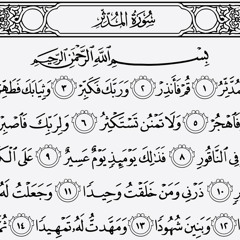 سُورَةُ الْمُدَّثِّرِ
بِسْمِ ٱللَّهِ ٱلرَّحْمَٰنِ ٱلرَّحِيمِ
مُدَّثِّرُ ١ قُمْ فَأَنذِرْ ٢ وَرَبَّكَ فَكَبِّرْ ٣ وَثِيَابَكَ فَطَهِّرْ
فَٱهْجُرْ ٥ وَلَا تَمْنُن تَسْتَكْثِرُ ٦ وَلِرَبِّكَ فَٱصْبِرْ
فِي ٱلنَّاقُورِ ٨ فَذَٰلِكَ يَوْمَئِذٍ يَوْمٌ عَسِيرٌ ٩ عَلَى ٱلْكَـ
١٠ ذَرْنِي وَمَنْ خَلَقْتُ وَحِيدًا ١١ وَجَعَلْتُ لَهُۥ
١٢ وَبَنِينَ شُهُودًا ١٣ وَمَهَّدتُّ لَهُۥ تَمْهِيدًا ١٤ ثُمَّ